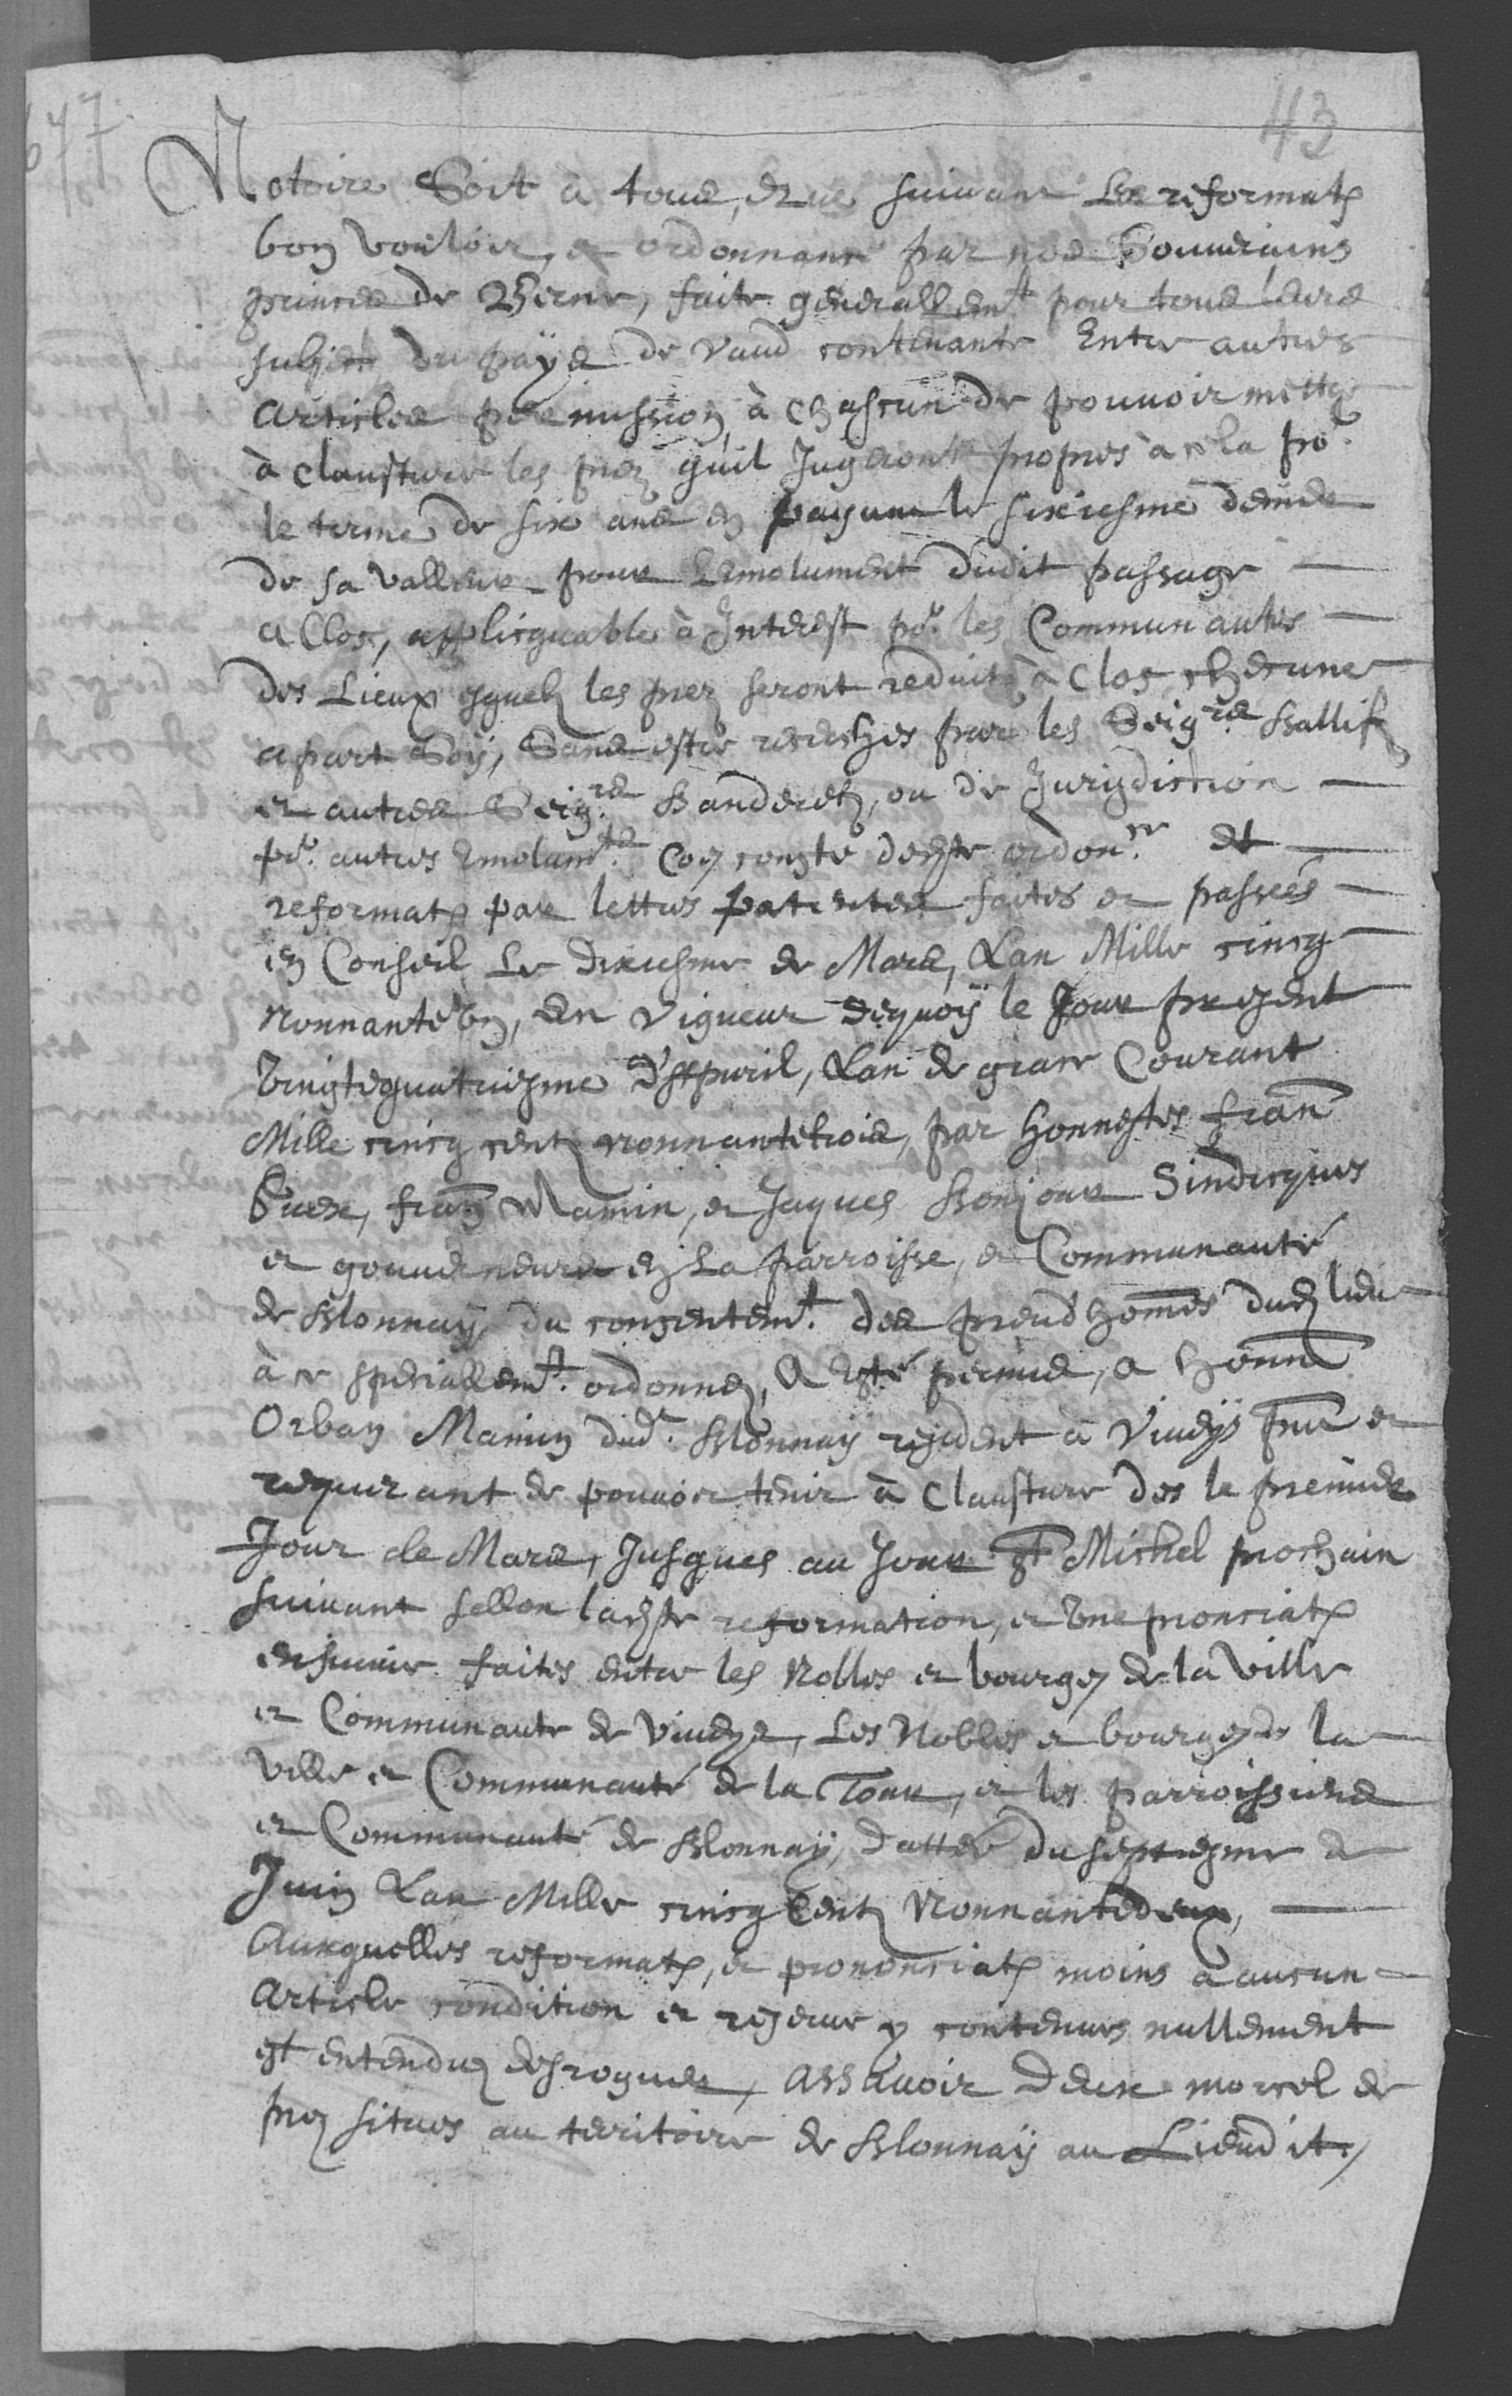 43
677
Notoire Soit à tous, que suivant les reformat
bon vouloir, et ordonnance par nos Souverains
princes de Berne, faite generallemt pour tous leurs
subjects du païs de Vaud contenante Entre autres
Articles permission, à Chascun de pouvoir mettre
à clausture les prez quil Jugeront propres à cela po.r
le terme de six ans en payant le sixiesme denier
de sa valleur pour Lemolument dudit passage
a Clos, applicquable à Interest po.r les Communautes
des Lieux esquelz les prez seront reduitz à Clos, chescune
a part Soÿ, Sans estre recerches par les Seig.rs Ballifz
et autres Seig.rs Banderetz, ou de Jurisdiction
po.r autres Emolumts. Co conste deste ordon.ce et
reformat par lettres patentes faites et passées
en Conseil Le Dixiesme de Mars, Lan Mille cincq
Nonnante un, En Vigueur dequoÿ le Jour present
Vingtequatriesme d'Apvril, Lan de grace Courant
Mille cincq centz nonnantetrois, par Honnestes fran
fran Mamin, et Jaques Bonjour Sindicques
et gouverneurs en La parroisse, et Communauté
de Blonnaÿ du consentemt. des preudhommes dud lieu
à ce speciallemt. ordonnez, A Esté permis, a honn
Orban Mamin dud. Blonnaÿ resident à Viveÿs pnt et
requerant de pouvoir tenir à Clausture des le premier
Jour de Mars, Jusques au Jour St Michel prochain
suivant sellon ladste reformation, et Une pronciat
ensuivie faites entre les Nobles et bourgeois de la Ville
et Communaute de Viveÿs, Les Nobles et bourgeois de la
Ville et Communauté de la Tour, et les parroissiens
et Communauté de Blonnaÿ, dattée du septiesme de
Juin Lan Mille cincq Centz Nonnantedeux,
Auxquelles reformat, et prononciat moins a aucun
Article condition et reserve y contenues nullement
est entenduz desroguer, assavoir Deux morcel de
prez situes au territoire de Blonnaÿ au Lieudit,